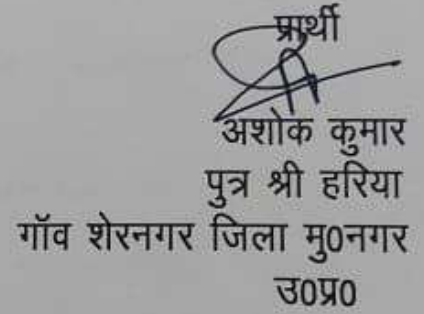 प्रार्थी
अशोक कुमार
पुत्र श्री हरिया
गॉव शेरनगर जिला मु0नगर
उ0प्र0